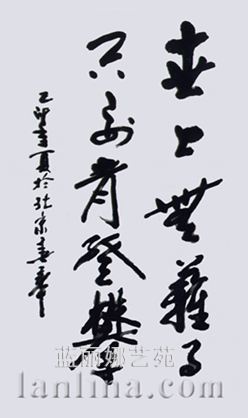 世上無難事
只要肯登攀
乙卯年夏於北京
蓝丽娜艺苑
lanlina.com